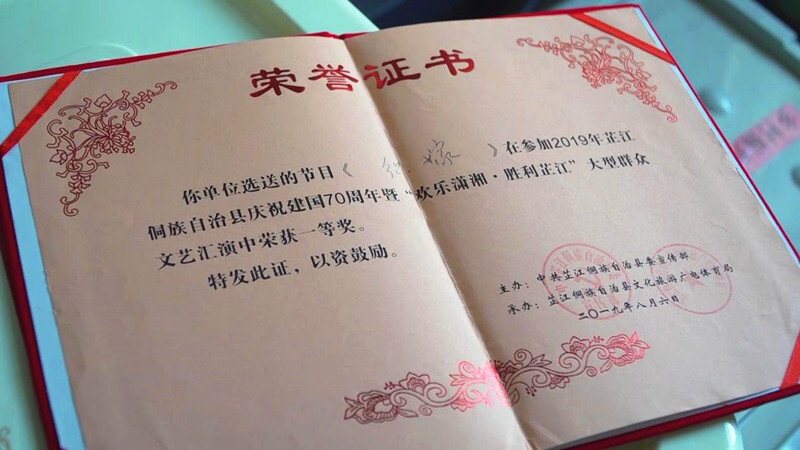 荣誉证书
你单位选送的节目《 嫁 》在参加2019年芷江
侗族自治县庆祝建国70周年暨“欢乐潇湘·胜利芷江”大型群众
文艺汇演中荣获一等奖。
特发此证，以资鼓励。
主办：中共芷江侗族自治县委宣传部
承办：芷江侗族自治县文化旅游广电体育局
二〇一九年八月六日